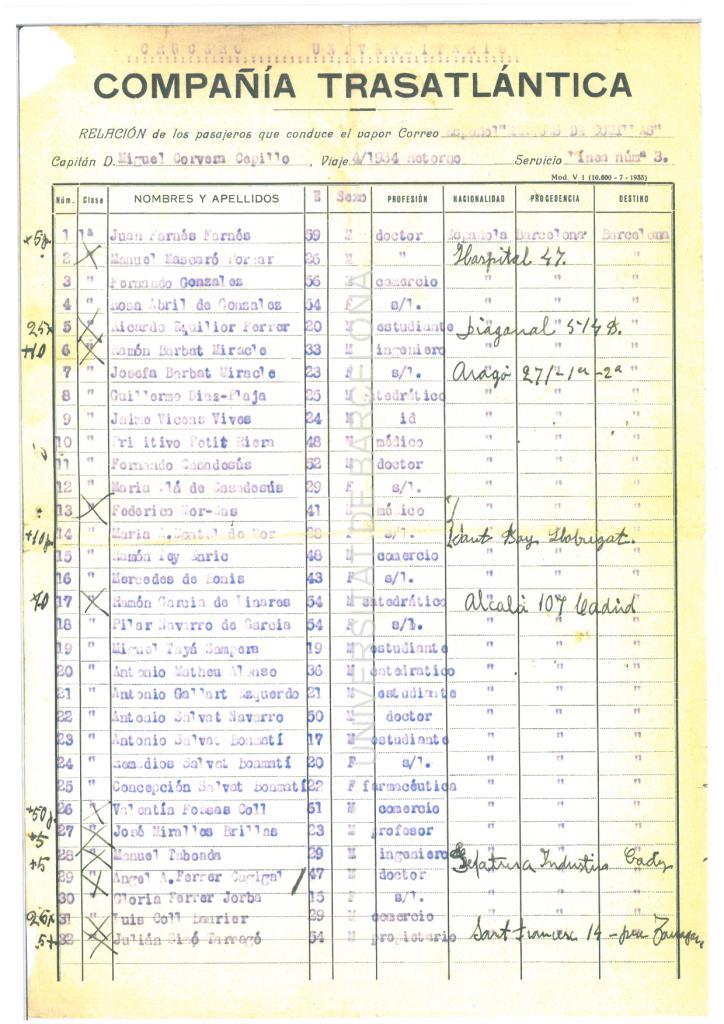 CRUCERO UNIVERSITARIO
COMPAÑÍA TRASATLÁNTICA
RELACIÓN de los pasajeros que conduce el vapor Correo Español "MARQUES DE COMILLAS"
Capitán D. Miguel Corvera Cepillo, Viaje 4/1934 Retorno Servicio Línea núm* 3.
Mod. V 1 (10.000 - 7 - 1933)
Núm. Clase NOMBRES Y APELLIDOS E Sexo PROFESIÓN NACIONALIDAD PROCEDENCIA DESTINO
1 1ª Juan Farnés Farnés 59 M doctor Española Barcelona Barcelona
2 " Manuel Mascaró 26 M " Hospital 47. "
3 " Fernando Gonzalez 56 M comercio " " "
4 " Rosa Abril de Gonzalez 54 F s/l. " " "
25 5 " Ricardo Ferrer 20 M estudiante Diagonal 514 "
+10 6 " Ramón Barbat Miracle 33 M ingeniero " " "
7 " Josefa Barbat Miracle 23 F s/l. Aragó 271-1ª-2ª "
8 " Guillermo Diaz-Plaja 25 M catedrático " " "
9 " Jaime Vicens Vives 24 M id " " "
10 " Primitivo Petit Riera 48 M médico " " "
11 " Fernando Casadesús 52 M doctor " " "
12 " Maria Plá de Casadesús 29 F s/l. " " "
13 " Federico 41 M médico " " "
14 " Maria F s/l. Sant Boy Llobregat.
15 " Ramón Rey 48 M comercio " " "
16 " Mercedes de 43 F s/l. " " "
17 " Ramón Garcia de Linares 54 M catedrático Alcalá 107 Madrid "
18 " Pilar Navarro de Garcia 54 F s/l. " " "
19 " Miguel Tayá Sampera 19 M estudiante " " "
20 " Antonio Matheu Alonso 36 M catedratico " " "
21 " Antonio Gallart Esquerdo 21 M estudiante " " "
22 " Antonio Salvat Navarro 50 M doctor " " "
23 " Antonio Salvat Bonmatí 17 M estudiante " " "
24 " Remedios Salvat Bonmatí 20 F s/l. " " "
25 " Concepción Salvat Bonmatí 22 F farmacéutica " " "
26 " Valentín Fossas Coll 51 M comercio " " "
+5 27 " José Miralles Brillas 23 M profesor " " "
+5 28 " Manuel Taboada 29 M ingeniero Jefatura Industria Cadiz
29 " Angel A. Ferrer Cagigal 47 M doctor " " "
30 " Gloria Ferrer Jorba 15 F s/l. " " "
31 " Luis Coll 29 M comercio " " "
5+ 32 " Julián Sisó Tarragó 54 M propietario Sant Francesc 14
UNIVERSITAT DE BARCELONA